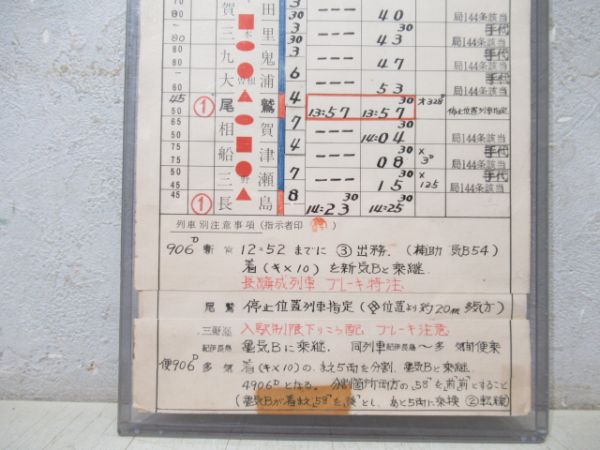 70 賀田 3 30 --- 40 局144条該当
三木里 3 30 --- 43 手代 局144条該当
80 九鬼 3 --- 47 手代 局144条該当
大曽根浦 6 --- 53 手代 局144条該当
45 ① 尾鷲 4 13:57 13:57 30 オ328 停止位置列車指定
50 相賀 7 --- 14:04 30 局144条該当
65 船津 4 --- 08 × 3 手代 局144条該当
45 三野瀬 7 --- 15 30 × 125 手代 局144条該当
45 ① 長島 8 14:23 30 14:25 30
列車別注意事項(指示者印 )
906D 12:52 までに ③出務. (補助 気B54)
着(キ×10)を新気Bと乗継.
長編成列車 ブレーキ特注
尾鷲 停止位置列車指定 (位置より約20m
三野瀬 入駅制限下りこう配, ブレーキ注意
紀伊長島 亀気Bに乗継, 同列車紀伊長島〜多 気前便乗
便906D 多気 着(キ×10)の, まえ5両を分割, 亀気Bと乗継.
4906Dとなる. 分割箇所両方の"58"を"前"とすること
(亀気Bが着まえ"58"を とし, あと5両に乗換 ②転線)